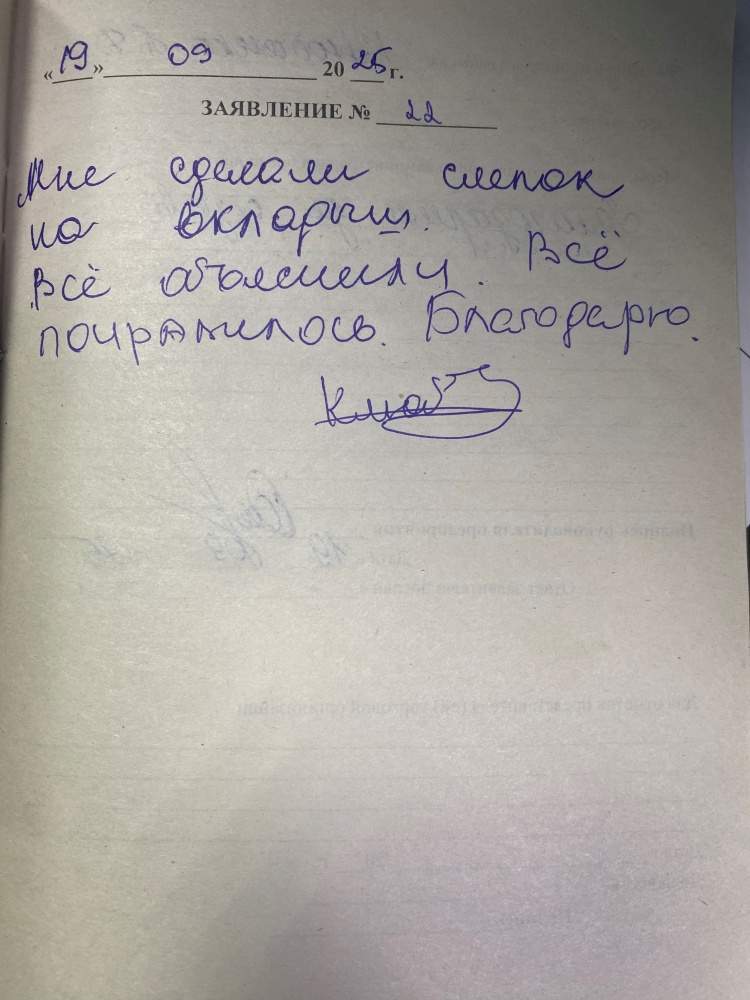 «19» 09 2025 г.
ЗАЯВЛЕНИЕ № 22
Мне сделали слепок
на вкладыш.
Всё объяснили. Всё
понравилось. Благодарю.